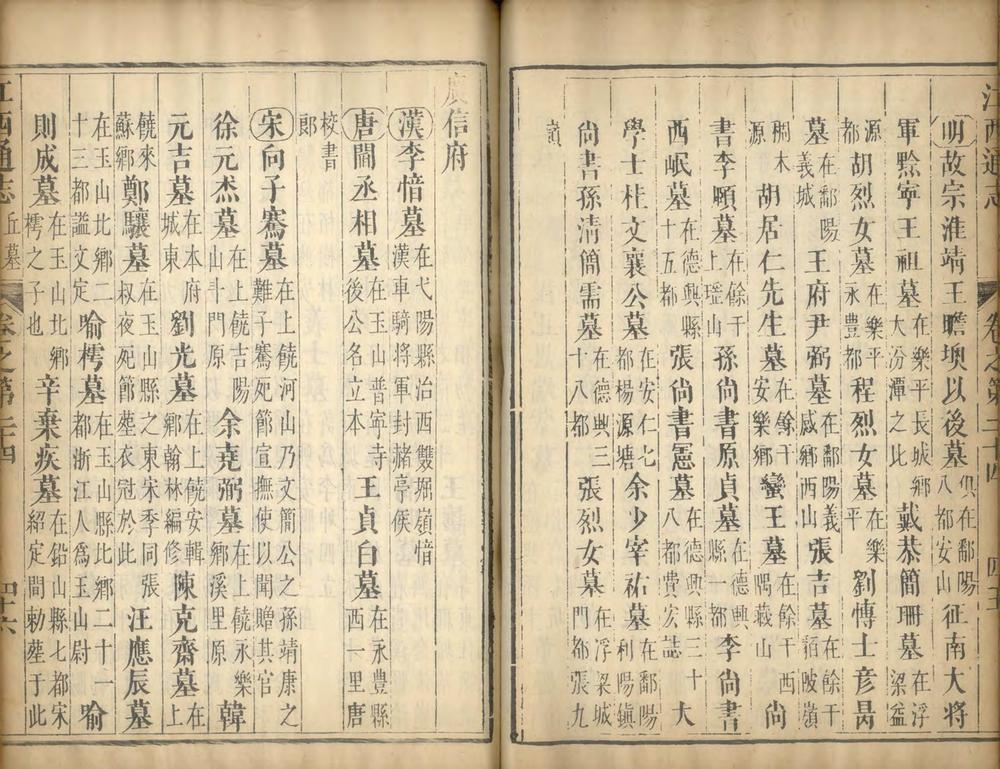 江西通志 卷之第二十四 四十五
明故宗淮靖王瞻墺以後墓俱在鄱陽八都安山征南大將
軍黥寧王祖墓在樂平長城鄉大汾潭之北戴恭簡珊墓在浮梁益
源都胡烈女墓在樂平永豐都程烈女墓在樂平劉博士彥昺
墓在鄱陽義城王府尹弼墓在鄱陽義咸鄉西山張吉墓在餘干栢畈嶺
桐木源胡居仁先生墓在餘干安樂鄉蠻王墓在餘干西隅藏山尚
書李頤墓在餘干上瑶山孫尚書原貞墓在德興縣一都李尚書
西岷墓在德興縣十五都張尚書憲墓在德興三十八都費宏誌大
學士桂文襄公墓在安仁七都楊源塘余少宰祐墓在鄱陽利陽鎮
尚書孫清簡需墓在德興三十八都張烈女墓在浮梁城門都張九
嶺
廣信府
漢李愔墓在弋陽縣治西雙堀嶺愔漢車騎將軍封赭亭侯
唐閻丞相墓在玉山普寧寺後公名立本王貞白墓在永豐縣西一里唐
校書郎
宋向子騫墓在上饒河山乃文簡公之孫靖康之難子騫死節宣撫使以聞贈其官
徐元杰墓在上饒吉陽山斗門原余堯弼墓在上饒永樂鄉溪里原韓
元吉墓在本府城東劉光墓在上饒安輯鄉翰林編修陳克齋墓在上
饒來蘇鄉鄭驤墓在玉山縣之東宋季同張叔夜死節塟衣冠於此汪應辰墓
在玉山北鄉二十三都謚文定喻樗墓在玉山縣北鄉二十一都浙江人爲玉山尉喻
則成墓在玉山北鄉樗之子也辛棄疾墓在鉛山縣七都宋紹定間勅塟于此
江西通志 丘墓 卷之第二十四 四十六